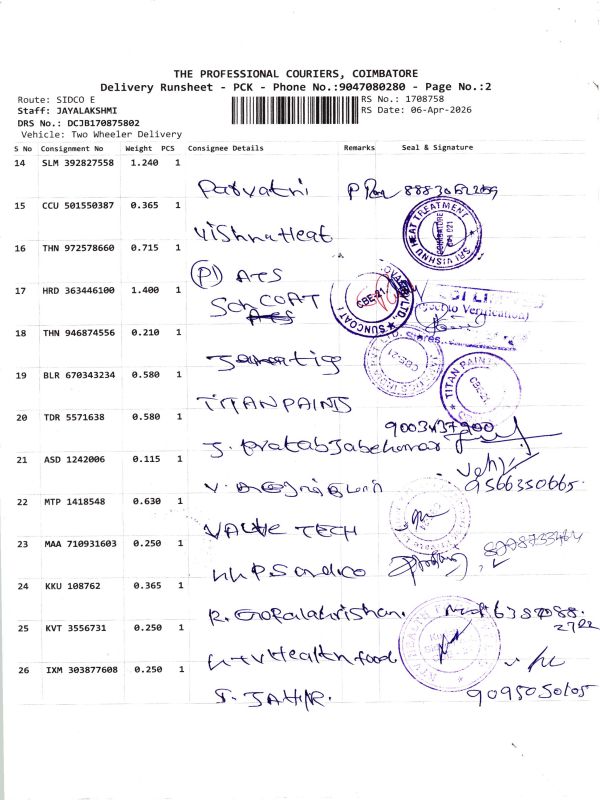 THE PROFESSIONAL COURIERS, COIMBATORE
Delivery Runsheet - PCK - Phone No.:9047080280 - Page No.:2
Route: SIDCO E
Staff: JAYALAKSHMI
DRS No.: DCJB170875802
Vehicle: Two Wheeler Delivery
RS No.: 1708758
RS Date: 06-Apr-2026
S No Consignment No Weight PCS Consignee Details Remarks Seal & Signature
14 SLM 392827558 1.240 1
Parvathi
15 CCU 501550387 0.365 1
Vishnu Heat
SRI VISHNU HEAT TREATMENT
COIMBATORE
16 THN 972578660 0.715 1
(P1) ATS
17 HRD 363446100 1.400 1
Sun COAT
SUNCOAT
CBE-21.
to Verification)
18 THN 946874556 0.210 1
Stores
CBE-21
19 BLR 670343234 0.580 1
TITAN PAINTS
TITAN PAIN
CBE-21.
20 TDR 5571638 0.580 1
21 ASD 1242006 0.115 1
9566350665.
22 MTP 1418548 0.630 1
VALVE TECH
23 MAA 710931603 0.250 1
24 KKU 108762 0.365 1
R. Gopalakrishan.
25 KVT 3556731 0.250 1
Health food
26 IXM 303877608 0.250 1
J. JAHIR.
9095050105